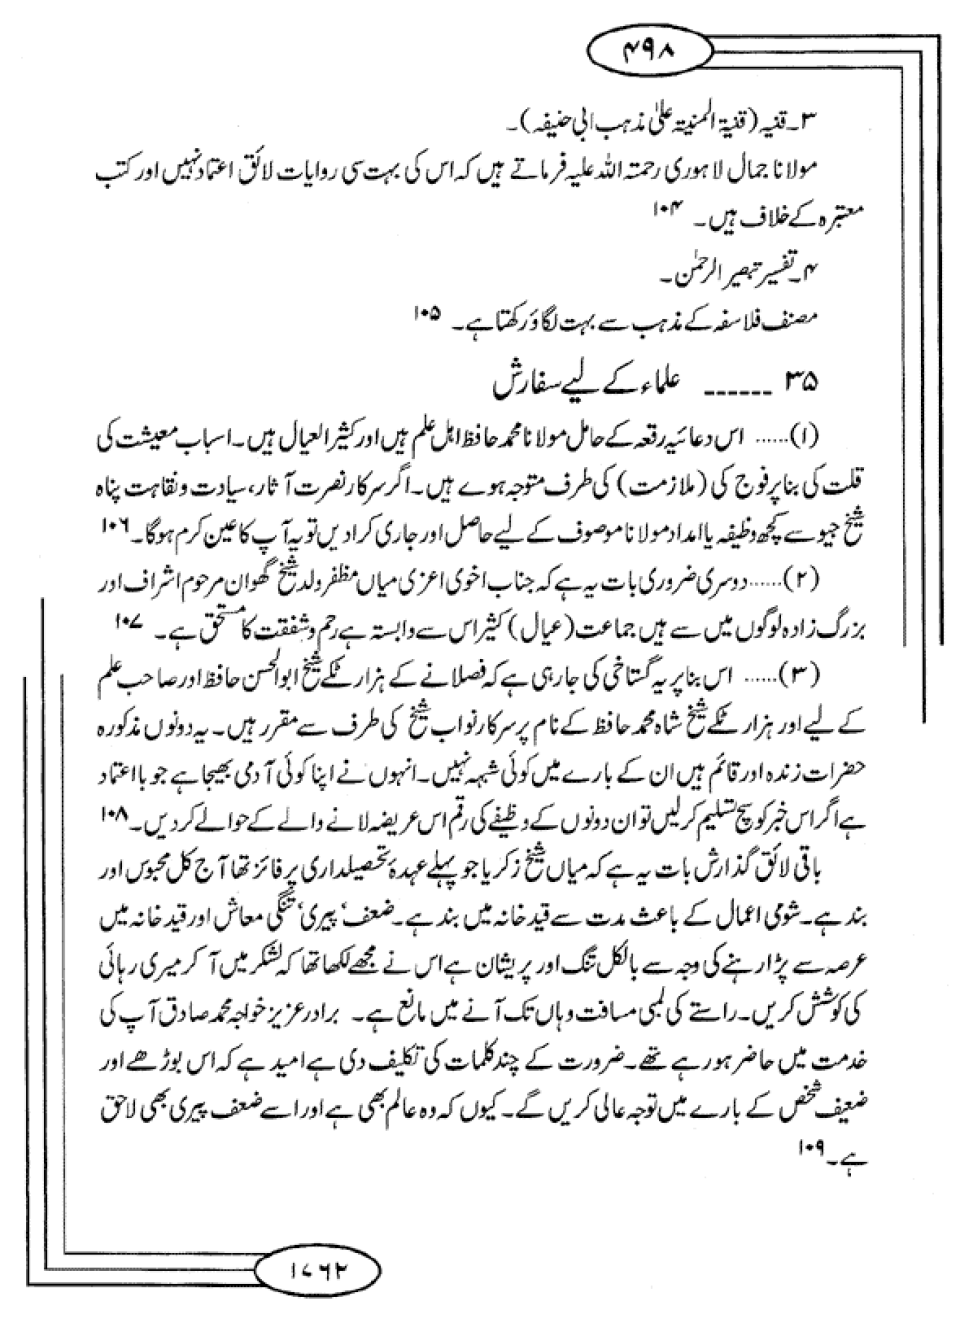 ۴۹۸
۳۔ قنیہ (قنیۃ المنیتہ علیٰ مذہب ابی حنیفہ)۔
مولانا جمال لاہوری رحمتہ اللہ علیہ فرماتے ہیں کہ اس کی بہت سی روایات لائق اعتماد نہیں اور کتب
معتبرہ کے خلاف ہیں۔ ۱۰۴
۴۔ تفسیر تبصیر الرحمٰن۔
مصنف فلاسفہ کے مذہب سے بہت لگاؤ رکھتا ہے۔ ۱۰۵
۳۵ ------ علماء کے لیے سفارش
(۱)...... اس دعائیہ رقعہ کے حامل مولانا محمد حافظ اہل علم ہیں اور کثیر العیال ہیں۔ اسباب معیشت کی
قلت کی بنا پر فوج کی (ملازمت) کی طرف متوجہ ہوے ہیں۔ اگر سرکار نصرت آثار، سیادت و نقاہت پناہ
شیخ جیو سے کچھ وظیفہ یا امداد مولانا موصوف کے لیے حاصل اور جاری کرا دیں تو یہ آپ کا عین کرم ہوگا۔ ۱۰۶
(۲)...... دوسری ضروری بات یہ ہے کہ جناب اخوی اعزی میاں مظفر ولد شیخ گھوان مرحوم اشراف اور
بزرگ زادہ لوگوں میں سے ہیں جماعت (عیال) کثیر اس سے وابستہ ہے رحم و شفقت کا مستحق ہے۔ ۱۰۷
(۳)...... اس بنا پر یہ گستاخی کی جا رہی ہے کہ فصلانے کے ہزار ٹکے شیخ ابوالحسن حافظ اور صاحب علم
کے لیے اور ہزار ٹکے شیخ شاہ محمد حافظ کے نام پر سرکار نواب شیخ کی طرف سے مقرر ہیں۔ یہ دونوں مذکورہ
حضرات زندہ اور قائم ہیں ان کے بارے میں کوئی شبہہ نہیں۔ انہوں نے اپنا کوئی آدمی بھیجا ہے جو با اعتماد
ہے اگر اس خبر کو سچ تسلیم کر لیں تو ان دونوں کے وظیفے کی رقم اس عریضہ لانے والے کے حوالے کر دیں۔ ۱۰۸
باقی لائق گذارش بات یہ ہے کہ میاں شیخ زکریا جو پہلے عہدۂ تحصیلداری پر فائز تھا آج کل محبوس اور
بند ہے۔ شومی اعمال کے باعث مدت سے قید خانہ میں بند ہے۔ ضعف ' پیری ' تنگی معاش اور قید خانہ میں
عرصہ سے پڑا رہنے کی وجہ سے بالکل تنگ اور پریشان ہے اس نے مجھے لکھا تھا کہ لشکر میں آ کر میری رہائی
کی کوشش کریں۔ راستے کی لمبی مسافت وہاں تک آنے میں مانع ہے۔ برادر عزیز خواجہ محمد صادق آپ کی
خدمت میں حاضر ہو رہے تھے۔ ضرورت کے چند کلمات کی تکلیف دی ہے امید ہے کہ اس بوڑھے اور
ضعیف شخص کے بارے میں توجہ عالی کریں گے۔ کیوں کہ وہ عالم بھی ہے اور اسے ضعف پیری بھی لاحق
ہے۔ ۱۰۹
۱۷۶۲